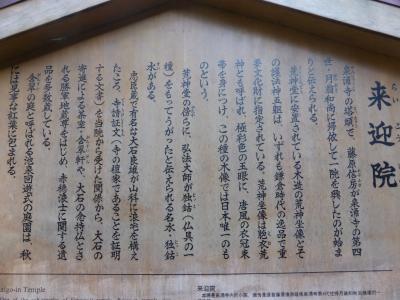 らい
来迎院
泉涌寺の塔頭で、藤原信房が泉涌寺の第四
世・月翁和尚に帰依して一院を興したのが始ま
りと伝えられる。
荒神堂に安置されている木造の荒神坐像とそ
の護法神五躯は、いずれも鎌倉時代の逸品で重
要文化財に指定されている。荒神坐像は
神とも呼ばれ、極彩色の玉眼に、唐風の衣冠束
帯を身につけ、この種の木像では日本唯一のも
のという。
荒神堂の傍らに、弘法大師が独鈷(仏具の一
種)をもってうがったと伝えられる名水・独鈷
水がある。
忠臣蔵で有名な大石良雄が山科に浪宅を構え
たころ、寺請証文(寺の檀家であることを証明
する文書)を当院から受けた関係から、大石の
寄進による茶室・含翠軒や、大石の念持仏とさ
れる勝軍地蔵尊をはじめ、赤穂浪士に関する遺
品を多数蔵している。
含翠の庭と呼ばれる池泉回遊式の庭園は、秋
には見事な紅葉に包まれる。
Raigo-in Temple
来迎院